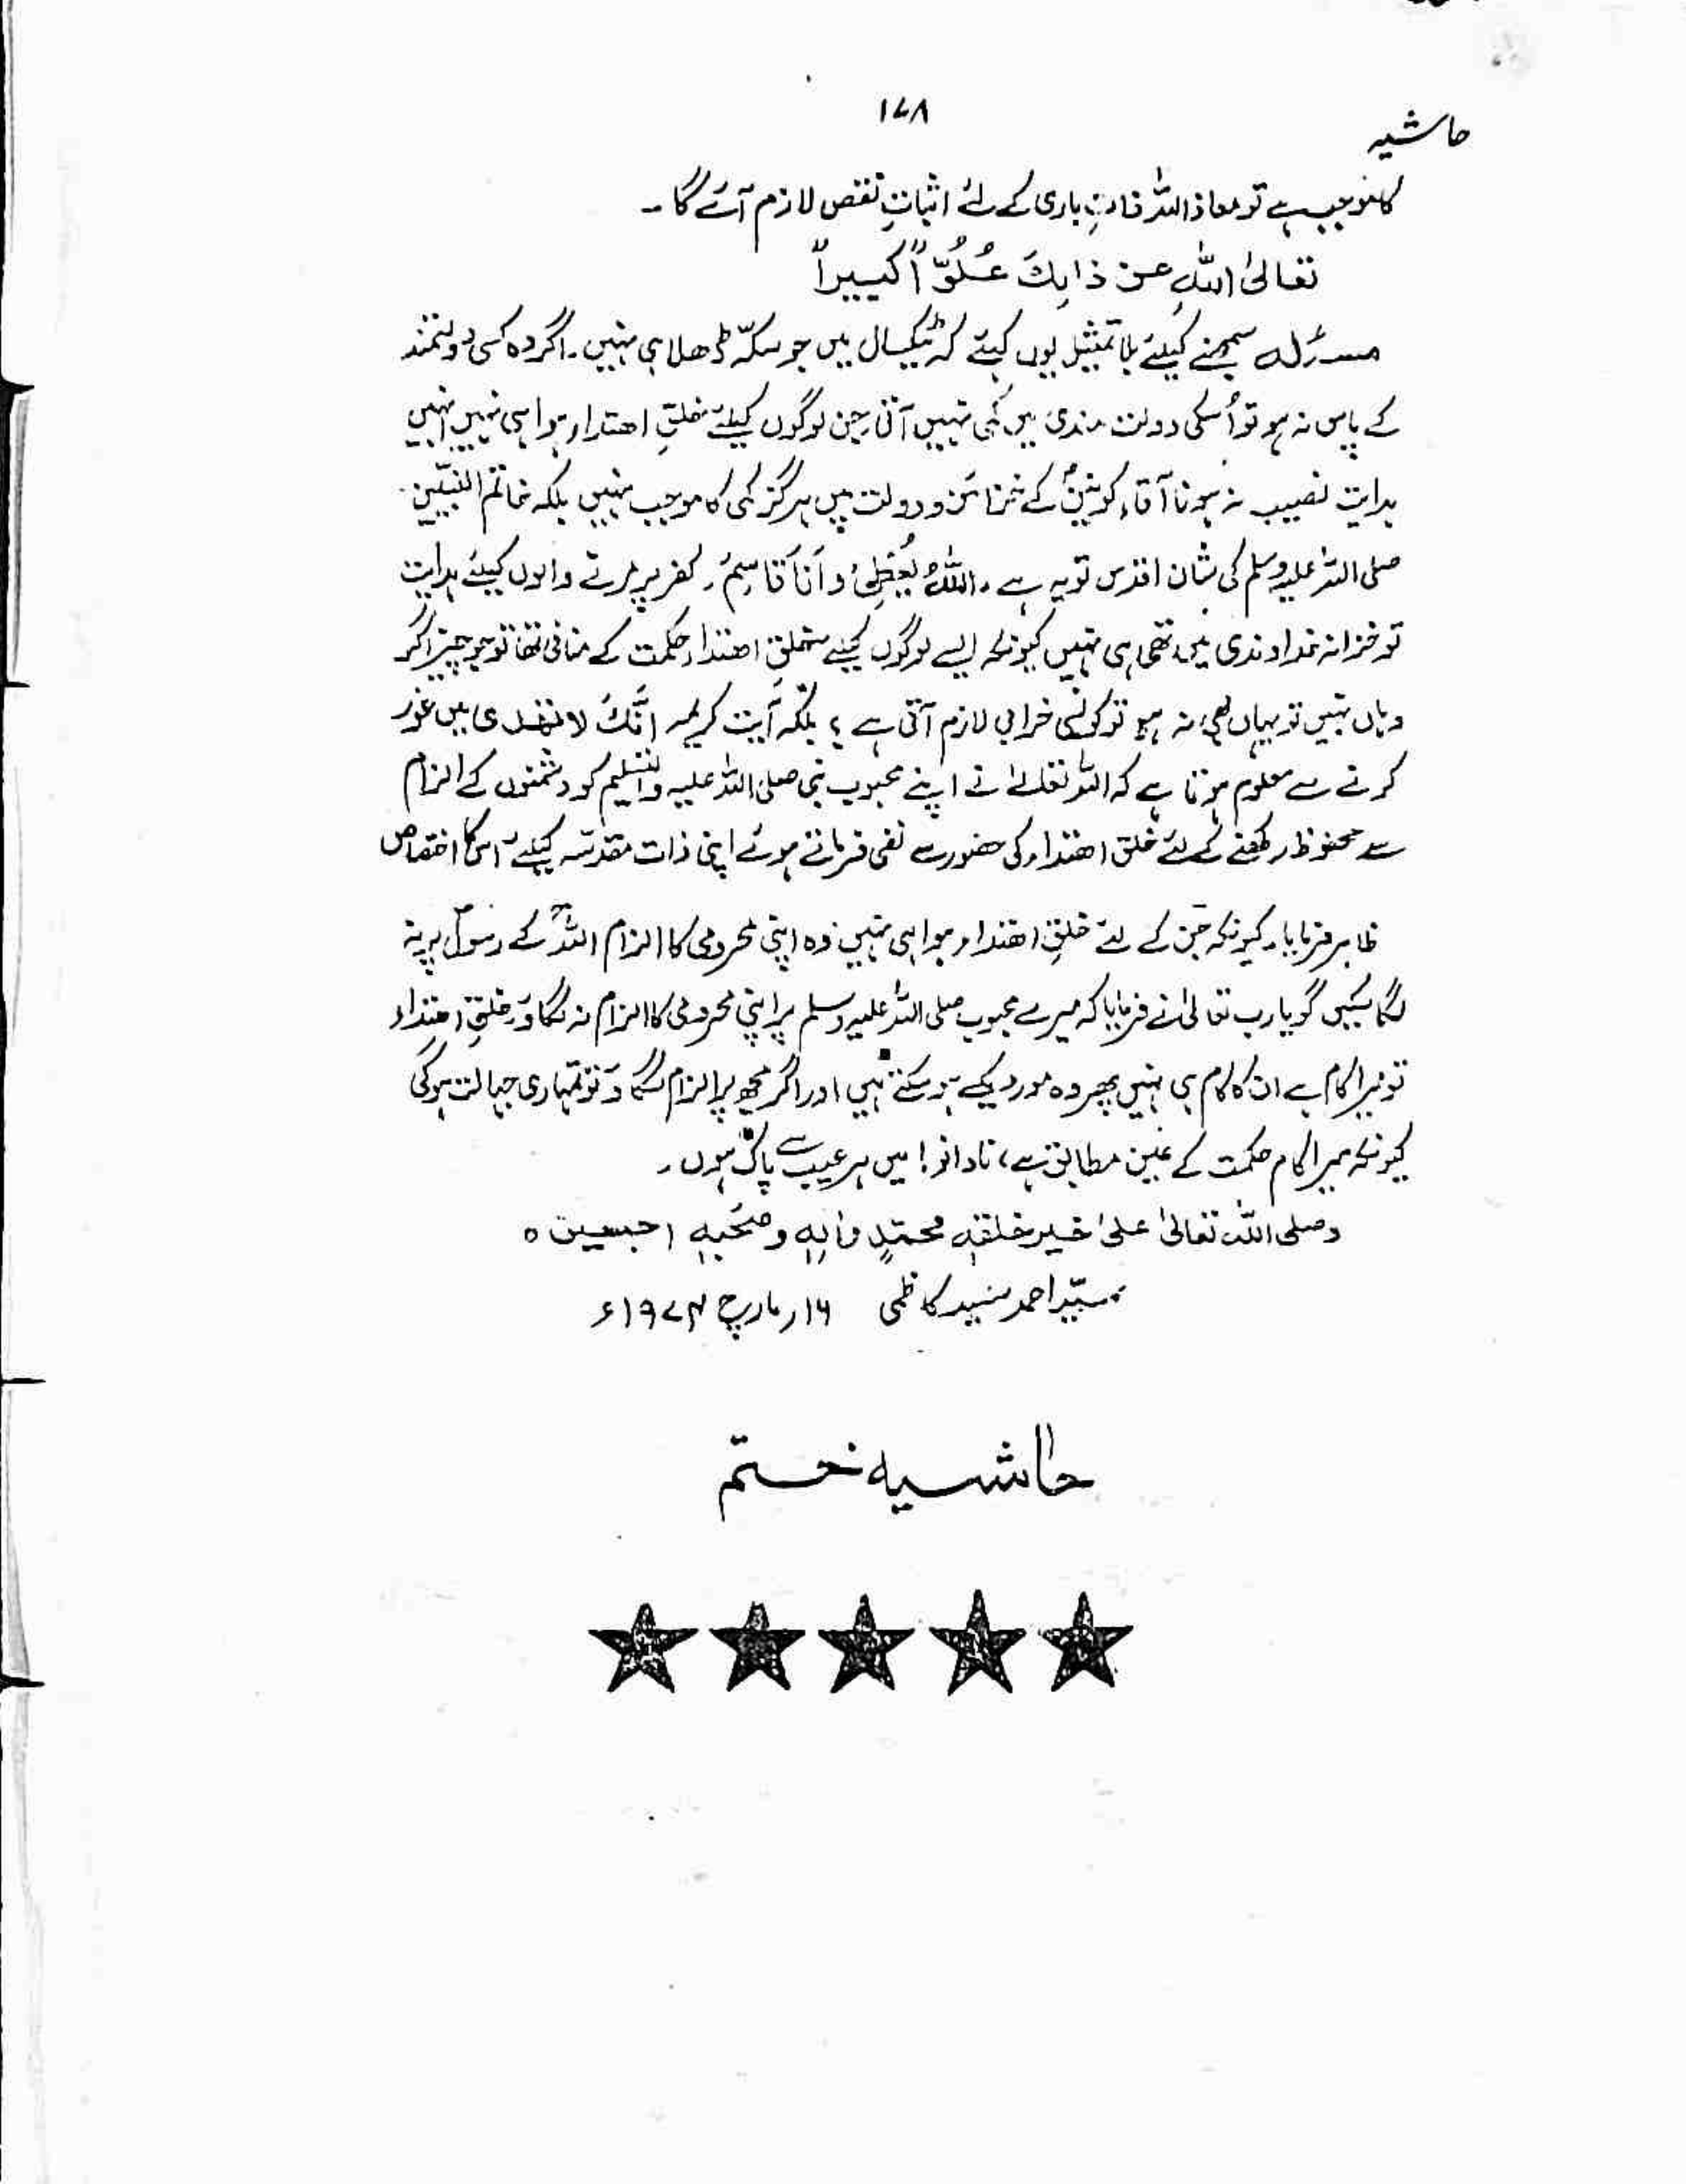 ۱۷۸
حاشیہ
کا موجب ہے تو معاذ اللہ ذاتِ باری کے لئے اثباتِ نقص لازم آئے گا۔
تعالیٰ اللہ عن ذالِكَ عُلُوًّا کبیراً
مسئلہ سمجھنے کیلئے بلا تمثیل یوں کہیئے کہ ٹیکسال میں جو سکّہ ڈھلا ہی نہیں۔ اگر وہ کسی دولتمند
کے پاس نہ ہو تو اُسکی دولت مندی میں کمی نہیں آتی جن لوگوں کیلئے خلقِ اھتداء ہوا ہی نہیں انہیں
ہدایت نصیب نہ ہونا آقاءِ کونینؐ کے خزائن و دولت میں ہرگز کمی کا موجب نہیں بلکہ خاتم النبیّین۔
صلی اللہ علیہ وسلم کی شان اقدس تو یہ ہے۔ اللہُ یُعْطِیْ وَ اَنَا قَاسِمٌ۔ کفر پر مرنے والوں کیلئے ہدایت
تو خزانہ خداوندی میں تھی ہی نہیں کیونکہ ایسے لوگوں کیلئے خلقِ اھتداء حکمت کے منافی تھا تو جو چیز اگر
وہاں نہیں تو یہاں بھی نہ ہو تو کونسی خرابی لازم آتی ہے؟ بلکہ آیت کریمہ انَّكَ لا تھدی میں غور
کرنے سے معلوم ہوتا ہے کہ اللہ تعالےٰ نے اپنے محبوب نبی صلی اللہ علیہ والتسلیم کو دشمنوں کے الزام
سے محفوظ رکھنے کے لئے خلق اھتداء کی حضور سے نفی فرماتے ہوئے اپنی ذات مقدسہ کیلئے اس کا اختصاص
ظاہر فرمایا۔ کیونکہ جن کے لئے خلقِ اھتداء ہوا ہی نہیں وہ اپنی محرومی کا الزام اللہ کے رسولؐ پر نہ
لگا سکیں گویا رب تعالیٰ نے فرمایا کہ میرے محبوب صلی اللہ علیہ وسلم پر اپنی محرومی کا الزام نہ لگاؤ، خلقِ اھتداء
تو میرا کام ہے ان کا کام ہی نہیں پھر وہ مورد کیسے ہو سکتے ہیں اور اگر مجھ پر الزام لگاؤ تو تمہاری جہالت ہوگی
کیونکہ میرا کام حکمت کے عین مطابق ہے، نادانو! میں ہر عیب سے پاک ہوں۔
وصلی اللہ تعالیٰ علیٰ خیر خلقہٖ محمّدٍ واٰلِہٖ وصَحْبِہٖ اجمعین ہ
سیّد احمد سعید کاظمی ۱۶ر مارچ ۱۹۷۴ء
حاشیہ ختم